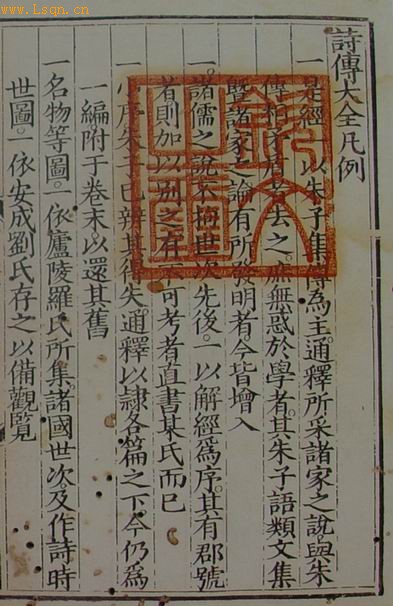 www.Lsqn.cn
詩傳大全凡例
一是經一以朱子集傳為主通釋所采諸家之說與朱
傳相矛盾者去之庶無惑於學者其朱子語類文集
暨諸家之論有所發明者今皆增入
一諸儒之說不拘世次先後一以解經爲序其有郡號
者則加以別之有不可考者直書某氏而已
一小序朱子已辨其得失通釋以隸各篇之下今仍爲
一編附于卷末以還其舊
一名物等圖一依廬陵羅氏所集諸國世次及作詩時
世圖一依安成劉氏存之以備觀覽
欽文
之璽